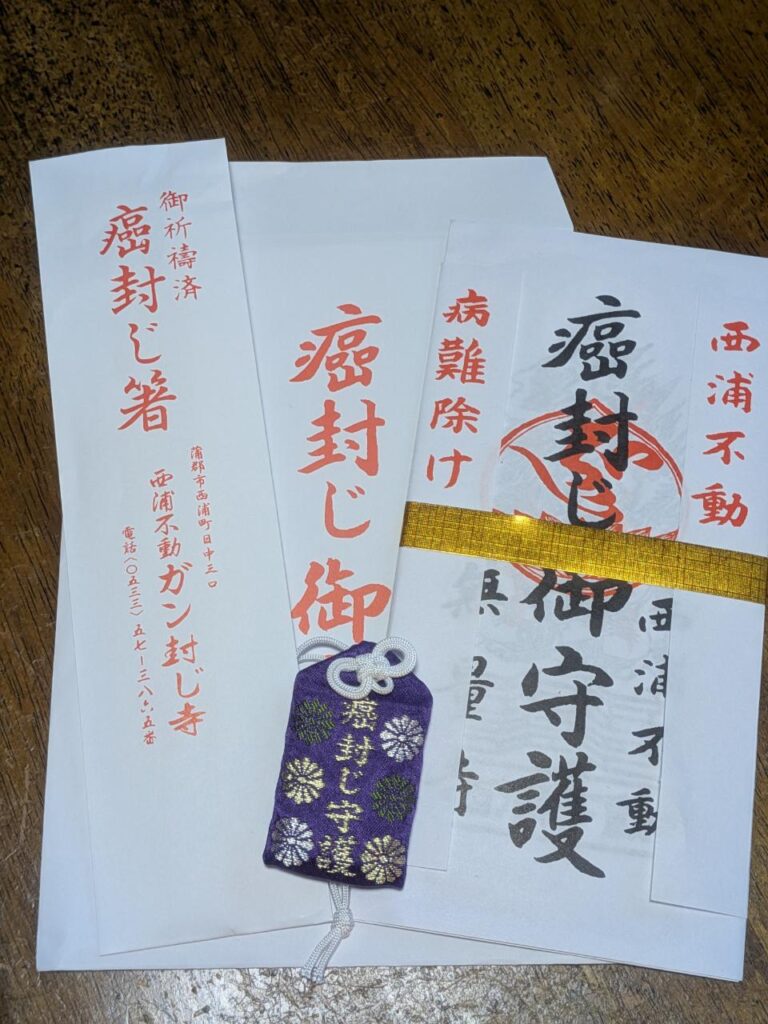 御祈禱済
癌封じ箸
蒲郡市西浦町日中三〇
西浦不動ガン封じ寺
電話(〇五三三)五七-三八六五番
癌封じ御
西浦不動
癌封じ御守護
病難除け
西浦不動
無量寺
癌封じ守護